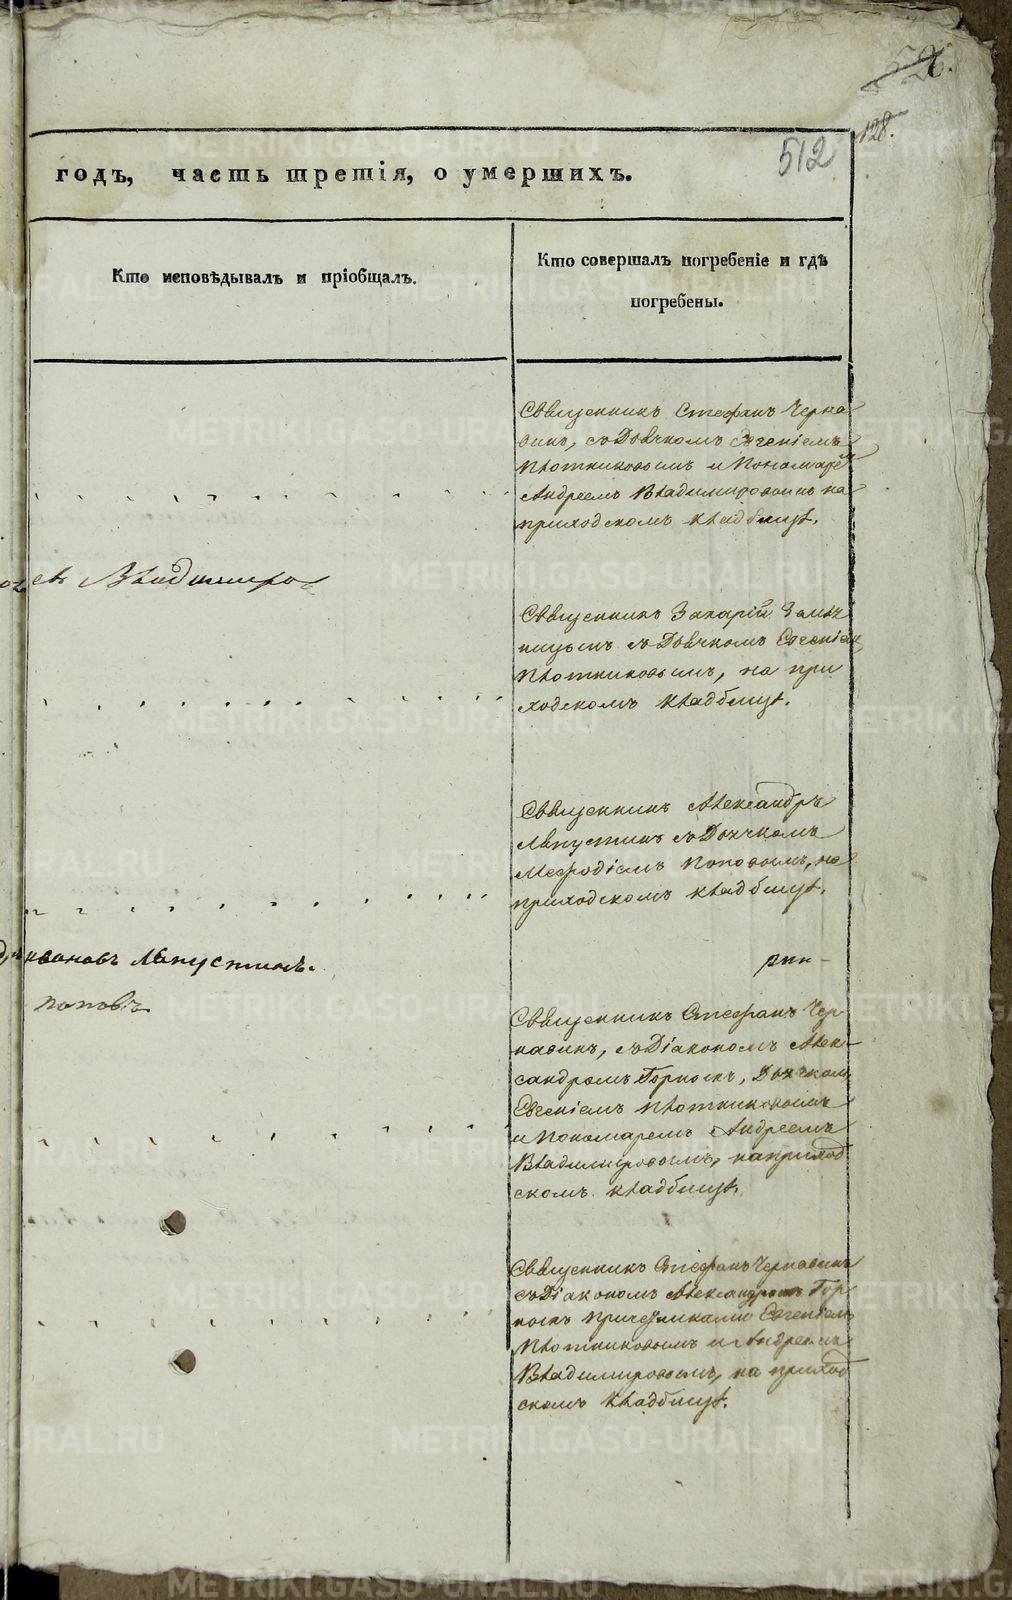 128.
512
годъ, часть третія, о умершихъ.
Кто исповѣдывалъ и пріобщалъ.
Кто совершалъ погребеніе и гдѣ
погребены.
Священникъ Стефанъ Черна
винъ, съ Дьячкомъ Евгеніемъ
Плотниковымъ и Пономарём
Андреемъ Владимировымъ на
приходскомъ кладбищѣ.
Владимиро
Священникъ Захарій
съ Дьячкомъ Евгеніем
Плотниковымъ, на при
ходскомъ кладбищѣ.
Священникъ Александръ
Ляпустинъ съ Дьячкомъ
Мефодіемъ Поповымъ, на
приходскомъ кладбищѣ.
ивановъ Ляпустинъ.
поповъ
Священникъ Стефанъ Чер
навинъ, съ Діакономъ Алек-
сандромъ Горныхъ, Дьячкомъ
Евгеніемъ Плотниковымъ
и Пономаремъ Андреемъ
Владимировымъ, на приход
скомъ кладбищѣ.
Священникъ Стефанъ Чернавинъ
съ Діакономъ Александромъ Гор
ныхъ причетниками Евгеніемъ
Плотниковымъ и Андреемъ
Владимировымъ, на приход
скомъ кладбищѣ.
METRIKI.GASO-URAL.RU